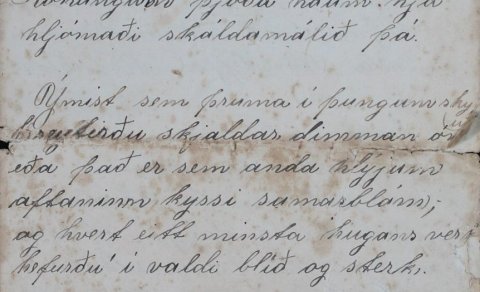 þjóða
hljómaði skáldamálið þá.
Ýmist sem þruma í þungum ský
skjaldar dimman
eða það er sem anda hlýjum
aftaninn kyssi sumarblóm,-
og hvert eitt minsta hugans verk
hefurðu í valdi blíð og sterk.